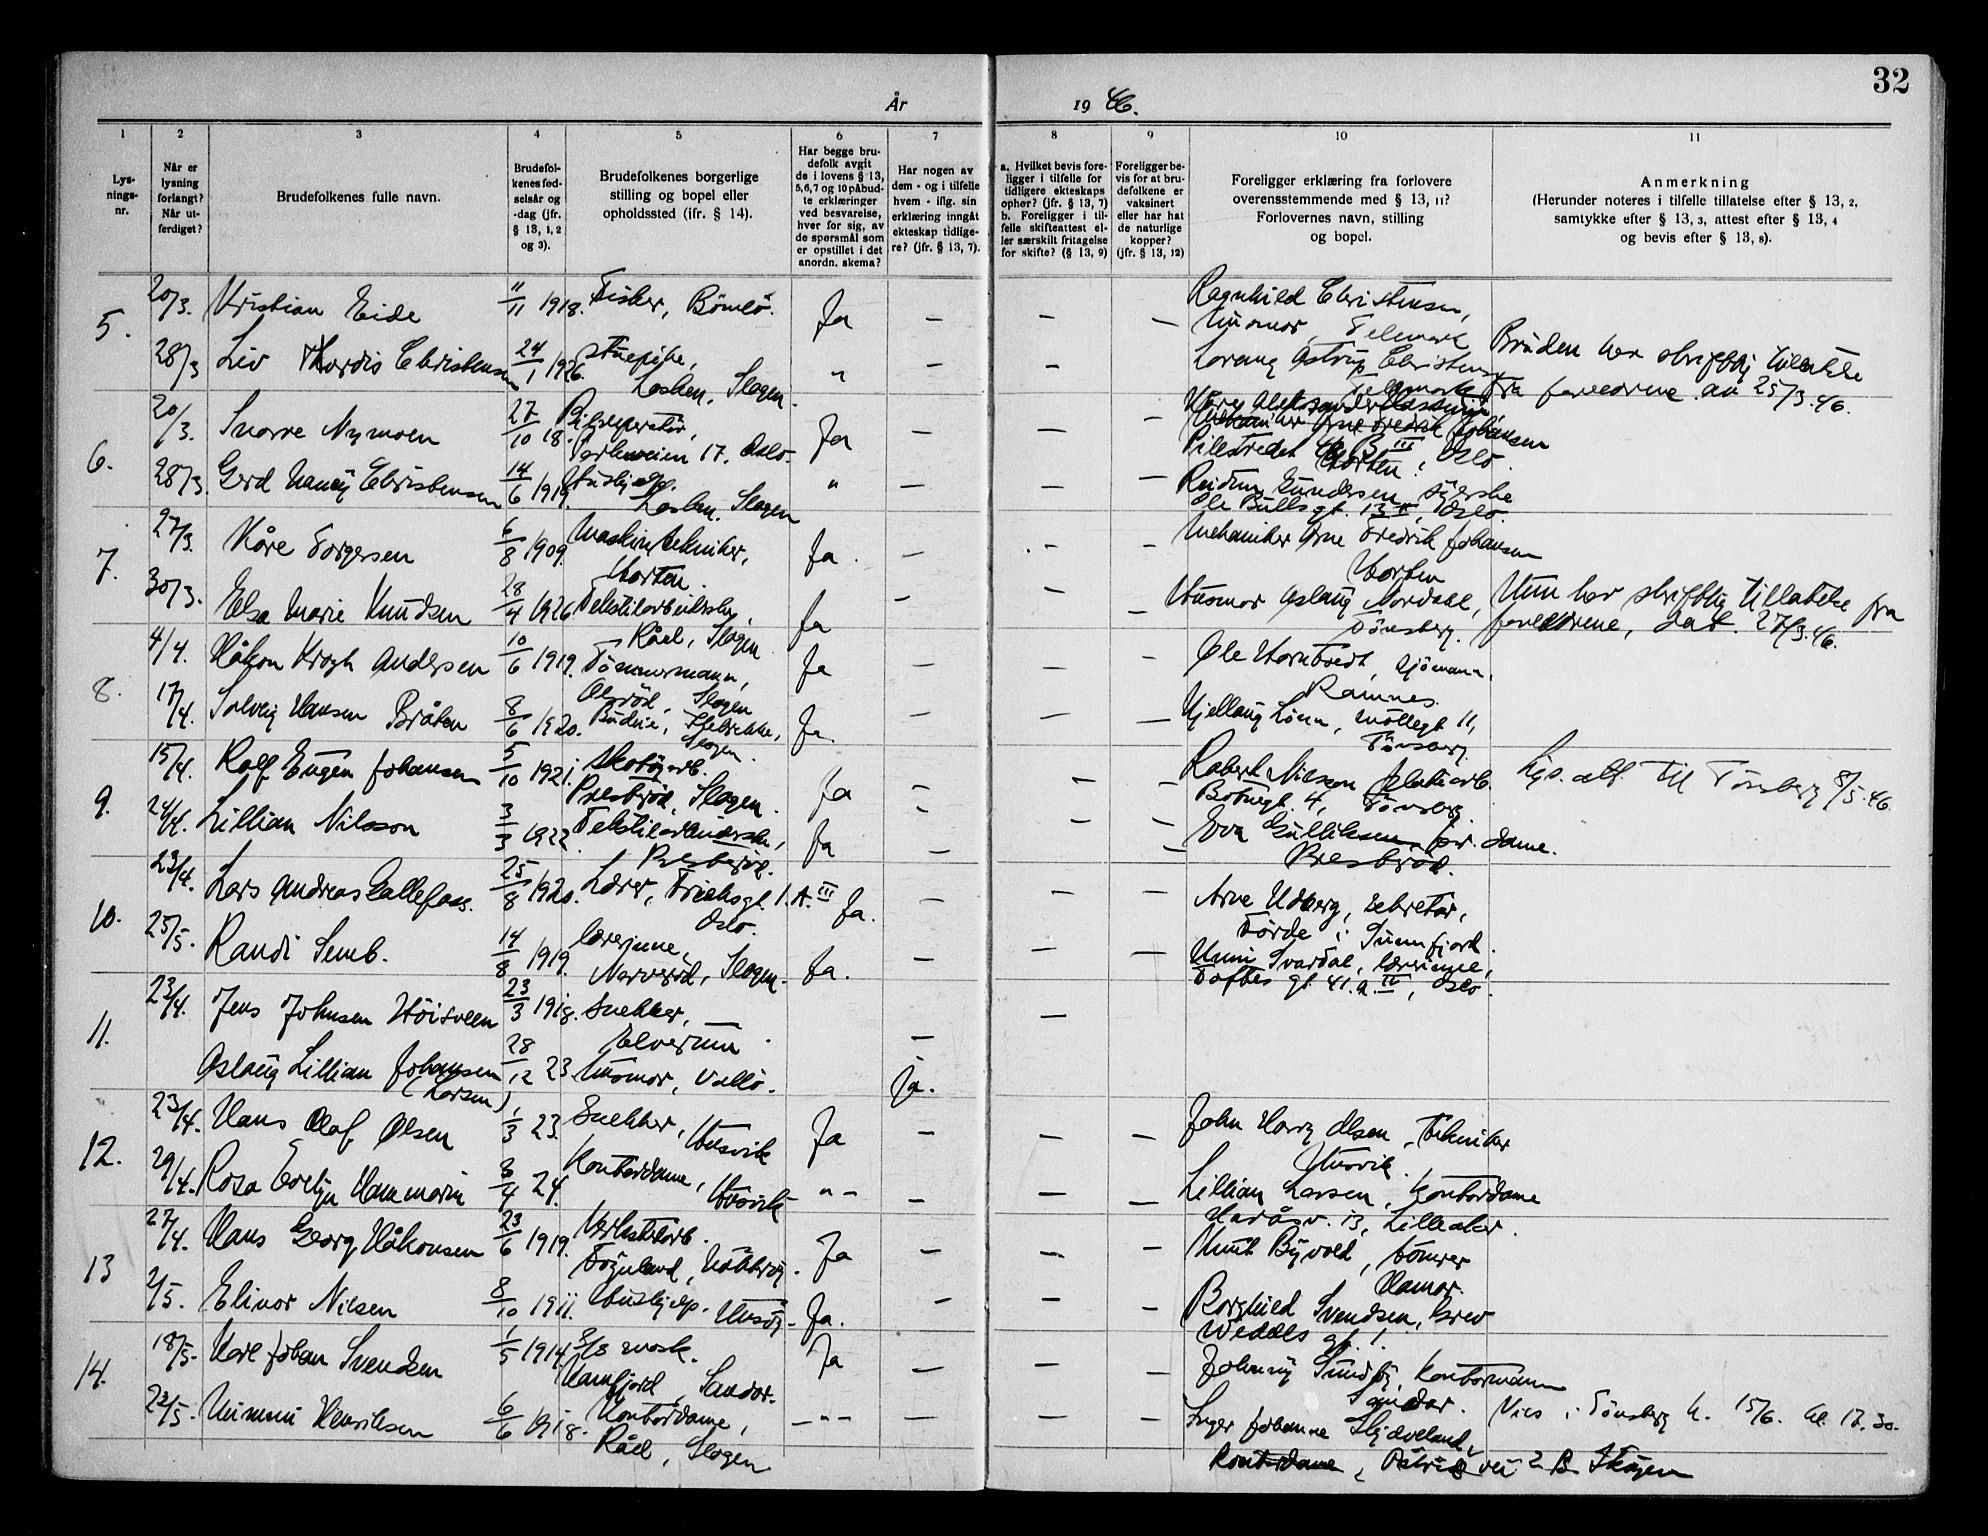 32
År
19 46.
1
2
3
4
5
6
7
8
9
10
11
Lys-
nings-
nr.
Når er
lysning
forlangt?
Når ut-
ferdiget?
Brudefolkenes fulle navn.
Brudefol-
kenes fød-
selsår og
-dag (jfr.
§ 13, 1, 2
og 3).
Brudefolkenes borgerlige
stilling og bopel eller
opholdssted (ifr. § 14).
Har begge bru-
defolk avgit
de i lovens § 13,
5,6,7 og 10 påbud-
te erklæringer
ved besvarelse,
hver for sig, av
de spørsmål som
er opstillet i det
anordn. skema?
Har nogen av
dem - og i tilfelle
hvem - iflg. sin
erklæring inngått
ekteskap tidlige-
re? (jfr. § 13, 7).
a. Hvilket bevis fore-
ligger i tilfelle for
tidligere ekteskaps
ophør? (§ 13, 7)
b. Foreligger i til-
felle skifteattest el-
ler særskilt fritagelse
for skifte? (§ 13, 9)
Foreligger be-
vis for at bru-
defolkene er
vaksinert
eller har hat
de naturlige
kopper?
(jfr. § 13, 12)
Foreligger erklæring fra forlovere
overensstemmende med § 13, 11?
Forlovernes navn, stilling
og bopel.
Anmerkning
(Herunder noteres i tilfelle tillatelse efter § 13, 2,
samtykke efter § 13, 3, attest efter § 13, 4
og bevis efter § 13, 8).
5. 20/3. Kristian Eide 11/11 1918. Fisker, Bömlo. Ja — — — Ragnhild Christensen,
Husmor, Telemark
28/3 Liv Thordis Christensen 24/1 1926. Stuepike, " — — Lorang Astrup Christensen Bruden har skriftlig tillatelse
Slagen. Telemark fra foreldrene av 25/3.46.
6. 20/3. Snorre Nymoen 27/10 18. Bilreperatör, Ja — — — Aleksander
17. Oslo. Mekaniker Arne Fredrik Johansen
Pilestredet III Oslo.
Horten.
28/3. Gerd Nancy Christensen 14/6 1919. Hushjelp. " — — — Reidun Gundersen, syerske
Slagen Ole Bullsgt. 13 Oslo.
7. 27/3. Kåre Torgersen 6/8 1909. Maskintekniker, Ja. — — — Mekaniker Arne Fredrik Johansen
Horten. Horten
30/3. Elsa Marie Knudsen 28/4 1926. Tekstilarbeiderske, Ja — — — Husmor Aslaug Nordahl, Hun har skriftlig tillatelse fra
Råel, Slagen Tönsberg. foreldrene, dat. 27/3.46.
8. 4/4. Håkon Krogh Andersen 10/6 1919. Tömmermann, Ja — — — Ole Horntvedt, sjömann,
Slagen Ramnes.
17/4. Solveig Hansen Bråten 8/6 1920. Budeie, Ja. — — — Kjellaug Lönn, Möllegt 11,
Slagen Tönsberg
9. 15/4. Rolf Eugen Johansen 5/10 1921. Skotöyarb. Ja — — — Robert Nilsson Lys. att. til Tönsberg 8/5.46
Presteröd, Slagen. 4, Tönsberg
24/4. Lillian Nilsson 3/3 1922. Tekstilarbeiderske, Ja — — — Eva Gulliksen, dame.
Presteröd. Presteröd.
10. 23/4. Lars Andreas Gallefoss. 25/8 1920. Lærer, 1. A. III Ja. — — — Arne Udberg, sekretær,
Oslo. Förde i Sunnfjord.
25/5. Randi Semb. 14/8 1919. Lærerinne, Ja. — — — Unni Svardal, lærerinne,
Narveröd, Slagen. Toftes gt. 41. a. IV, Oslo.
11. 23/4. Jens Johnsen Höisveen 23/3 1918. Snekker, — —
Elverum
Aslaug Lillian Johansen 28/12 23 Husmor, Vallö. Ja.
(Larsen)
12. 23/4. Hans Olaf Olsen 1/3 23. Snekker, Ja — — — John Harry Olsen, Tekniker
Husvik Husvik.
29/4. Rosa Evelyn Hammarin 3/4 24. Kontordame, " — — — Lillian Larsen, Kontordame
Husvik 13, Lilleaker.
13 27/4. Hans Georg Håkonsen 23/6 1919. Verkstedarb. Ja — — — Knut Byvold, tömrer
Föynland, Nötteröy. Hamar.
2/5. Elinor Nilsen 8/10 1911. Hushjelp. Husöy. Ja. — — — Borghild Svendsen, Grev
Wedels gt. 1.
14. 18/5. Karl Johan Svendsen 1/5 1914 2/3 mask. Ja — — — Johnny Sundby, Kontormann
Sandar. Sandar.
23/5. Mimmi Henriksen 6/6 1918. Kontordame, — " — — — — Inger Johanne Skjæveland, Vies i Tönsberg k. 15/6. kl. 17.30.
Råel, Slagen Kontordame, vei 2 B Skøyen